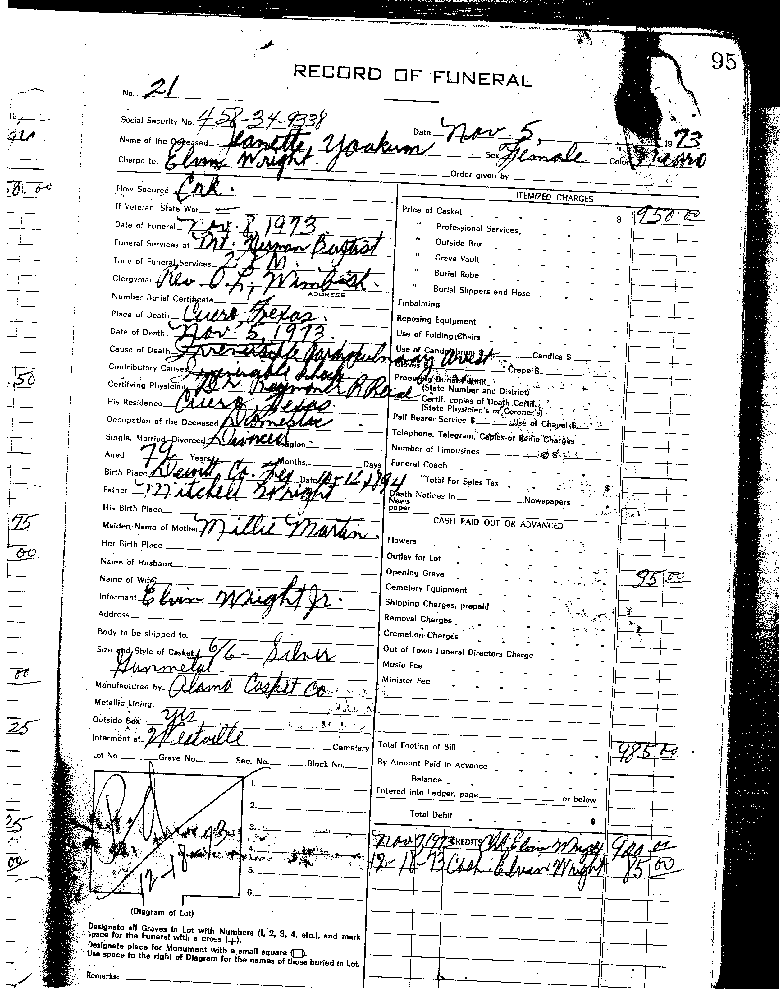 95
RECORD OF FUNERAL
No. 21
Social Security No. 458-34-9338
Date Nov 5, 1973
Name of the Deceased Yoakum Sex Female Color Negro
Charge to Elvin Wright
Order given by
How Secured
If Veteran State War
Date of Funeral Nov. 8 1973
Funeral Services at Mt. Herman Baptist
Time of Funeral Services 2 P.M.
Clergyman Rev. O. L. Wimbish
ADDRESS
Number Burial Certificate
Place of Death Cuero, Texas.
Date of Death Nov. 5, 1973
Cause of Death Irreversible Cardiopulmonary Arrest
Contributory Causes Irreversible shock
Certifying Physician Dr. Raymond R. Reese
His Residence Cuero Texas
Occupation of the Deceased Domestic
Single, Married, Divorced Divorced Religion
Aged 79 Years Months Days
Birth Place Dewitt Co. Tex Date 1894
Father Mitchell Wright
His Birth Place
Maiden Name of Mother Millie Martin
Her Birth Place
Name of Husband
Name of Wife
Informant Elvin Wright Jr.
Address
Body to be shipped to
Size and Style of Casket 6/6 - Silver
Gunmetal
Manufactured by Alamo Casket Co
Metallic Lining
Outside Box yes
Interment at Westville Cemetery
Lot No. Grave No. Sec. No. Block No.
1.
2.
3.
4.
5.
6.
12-18
(Diagram of Lot)
Designate all Graves in Lot with Numbers (1, 2, 3, 4, etc.), and mark
space for the Funeral with a cross (+).
Designate place for Monument with a small square (□).
Use space to the right of Diagram for the names of those buried in Lot.
Remarks:
ITEMIZED CHARGES
Price of Casket $ 950 00
" Professional Services,
" Outside Box
" Grave Vault
" Burial Robe
" Burial Slippers and Hose
Embalming
Reposing Equipment
Use of Folding Chairs
Use of Candelabrum Candles $
Gloves $ Crepe $
(State Number and District)
Certif. copies of Death Certif.
(State Physician's or Coroner's)
Pall Bearer Service $ Use of Chapel $
Telephone, Telegram, Cables or Radio Charges
Number of Limousines @ $
Funeral Coach
"Total For Sales Tax
Death Notices in Newspapers
News
paper
CASH PAID OUT OR ADVANCED
Flowers
Outlay for Lot
Opening Grave 95 00
Cemetery Equipment
Shipping Charges, prepaid
Removal Charges
Cremation Charges
Out of Town Funeral Directors Charge
Music Fee
Minister Fee
Total Footing of Bill 985 00
By Amount Paid in Advance
Balance
Entered into Ledger, page or below
Total Debit $
Nov 7 1973 CREDITS Elvin Wright 900 00
12-18 73 Cash Elvin Wright 85 00